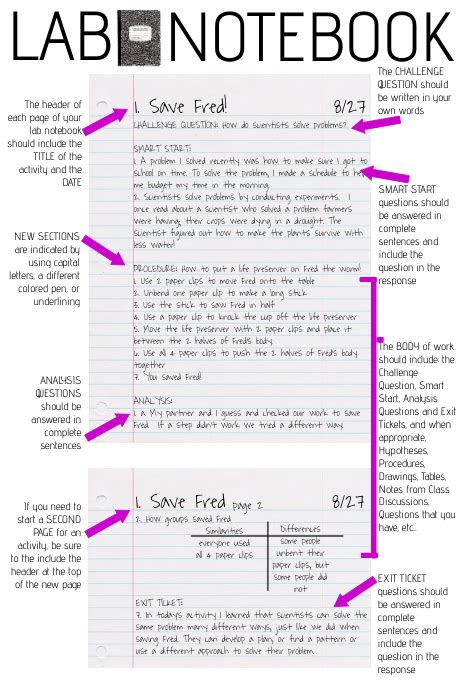 LAB NOTEBOOK
The header of
each page of your
lab notebook
should include
the TITLE of the
activity and the
DATE
NEW SECTIONS
are indicated by
using capital
letters, a different
colored pen, or
underlining
ANALYSIS
QUESTIONS
should be
answered in
complete
sentences
If you need to
start a SECOND
PAGE for an
activity, be sure
to the include the
header at the top
of the new page
1. Save Fred! 8/27
CHALLENGE QUESTION: How do scientists solve problems?
SMART START:
1. A problem I solved recently was how to make sure I got to
school on time. To solve the problem, I made a schedule to help
me budget my time in the morning.
2. Scientists solve problems by conducting experiments. I
once read about a scientist who solved a problem farmers
were having; their crops were dying in a drought. The
scientist figured out how to make the plants survive with
less water!
PROCEDURE: How to put a life preserver on Fred the Worm!
1. Use 2 paper clips to move Fred onto the table
2. Unbend one paper clip to make a long stick
3. Use the stick to saw Fred in half
4. Use a paper clip to knock the cup off the life preserver
5. Move the life preserver with 2 paper clips and place it
between the 2 halves of Fred's body.
6. Use all 4 paper clips to push the 2 halves of Fred's body
together
7. You saved Fred!
ANALYSIS:
1. a. My partner and I guess and checked our work to save
Fred. If a step didn't work we tried a different way.
1. Save Fred page 2 8/27
2. How groups saved Fred
Similarities Differences
everyone used
all 4 paper clips
some people
unbent their
paper clips, but
some people did
not
EXIT TICKET:
7. In today's activity I learned that scientists can solve the
same problem many different ways, just like we did when
saving Fred. They can develop a plan, or find a pattern or
use a different approach to solve their problem.
The CHALLENGE
QUESTION should
be written in your
own words
SMART START
questions should
be answered in
complete
sentences and
include the
question in the
response
The BODY of work
should include the
Challenge
Question, Smart
Start, Analysis
Questions and Exit
Tickets, and when
appropriate,
Hypotheses,
Procedures,
Drawings, Tables,
Notes from Class
Discussions,
Questions that you
have, etc..
EXIT TICKET
questions should
be answered in
complete
sentences and
include the
question in the
response